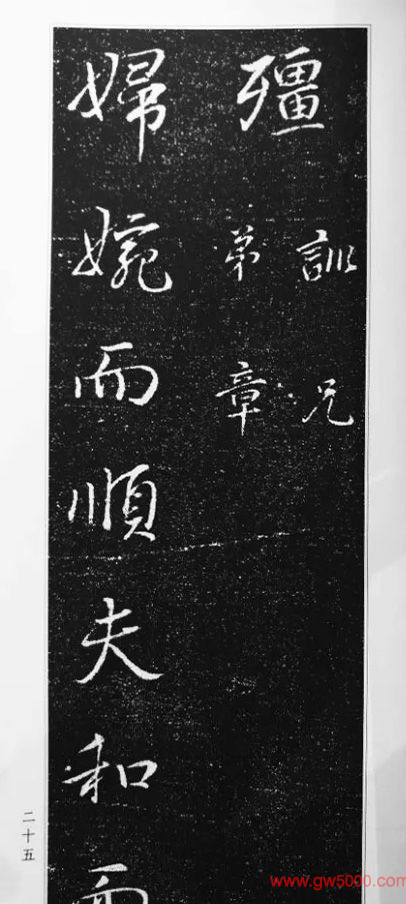 殭
訓兄
弟章
婦婉而順夫和而
二十五
www.gw5000.com